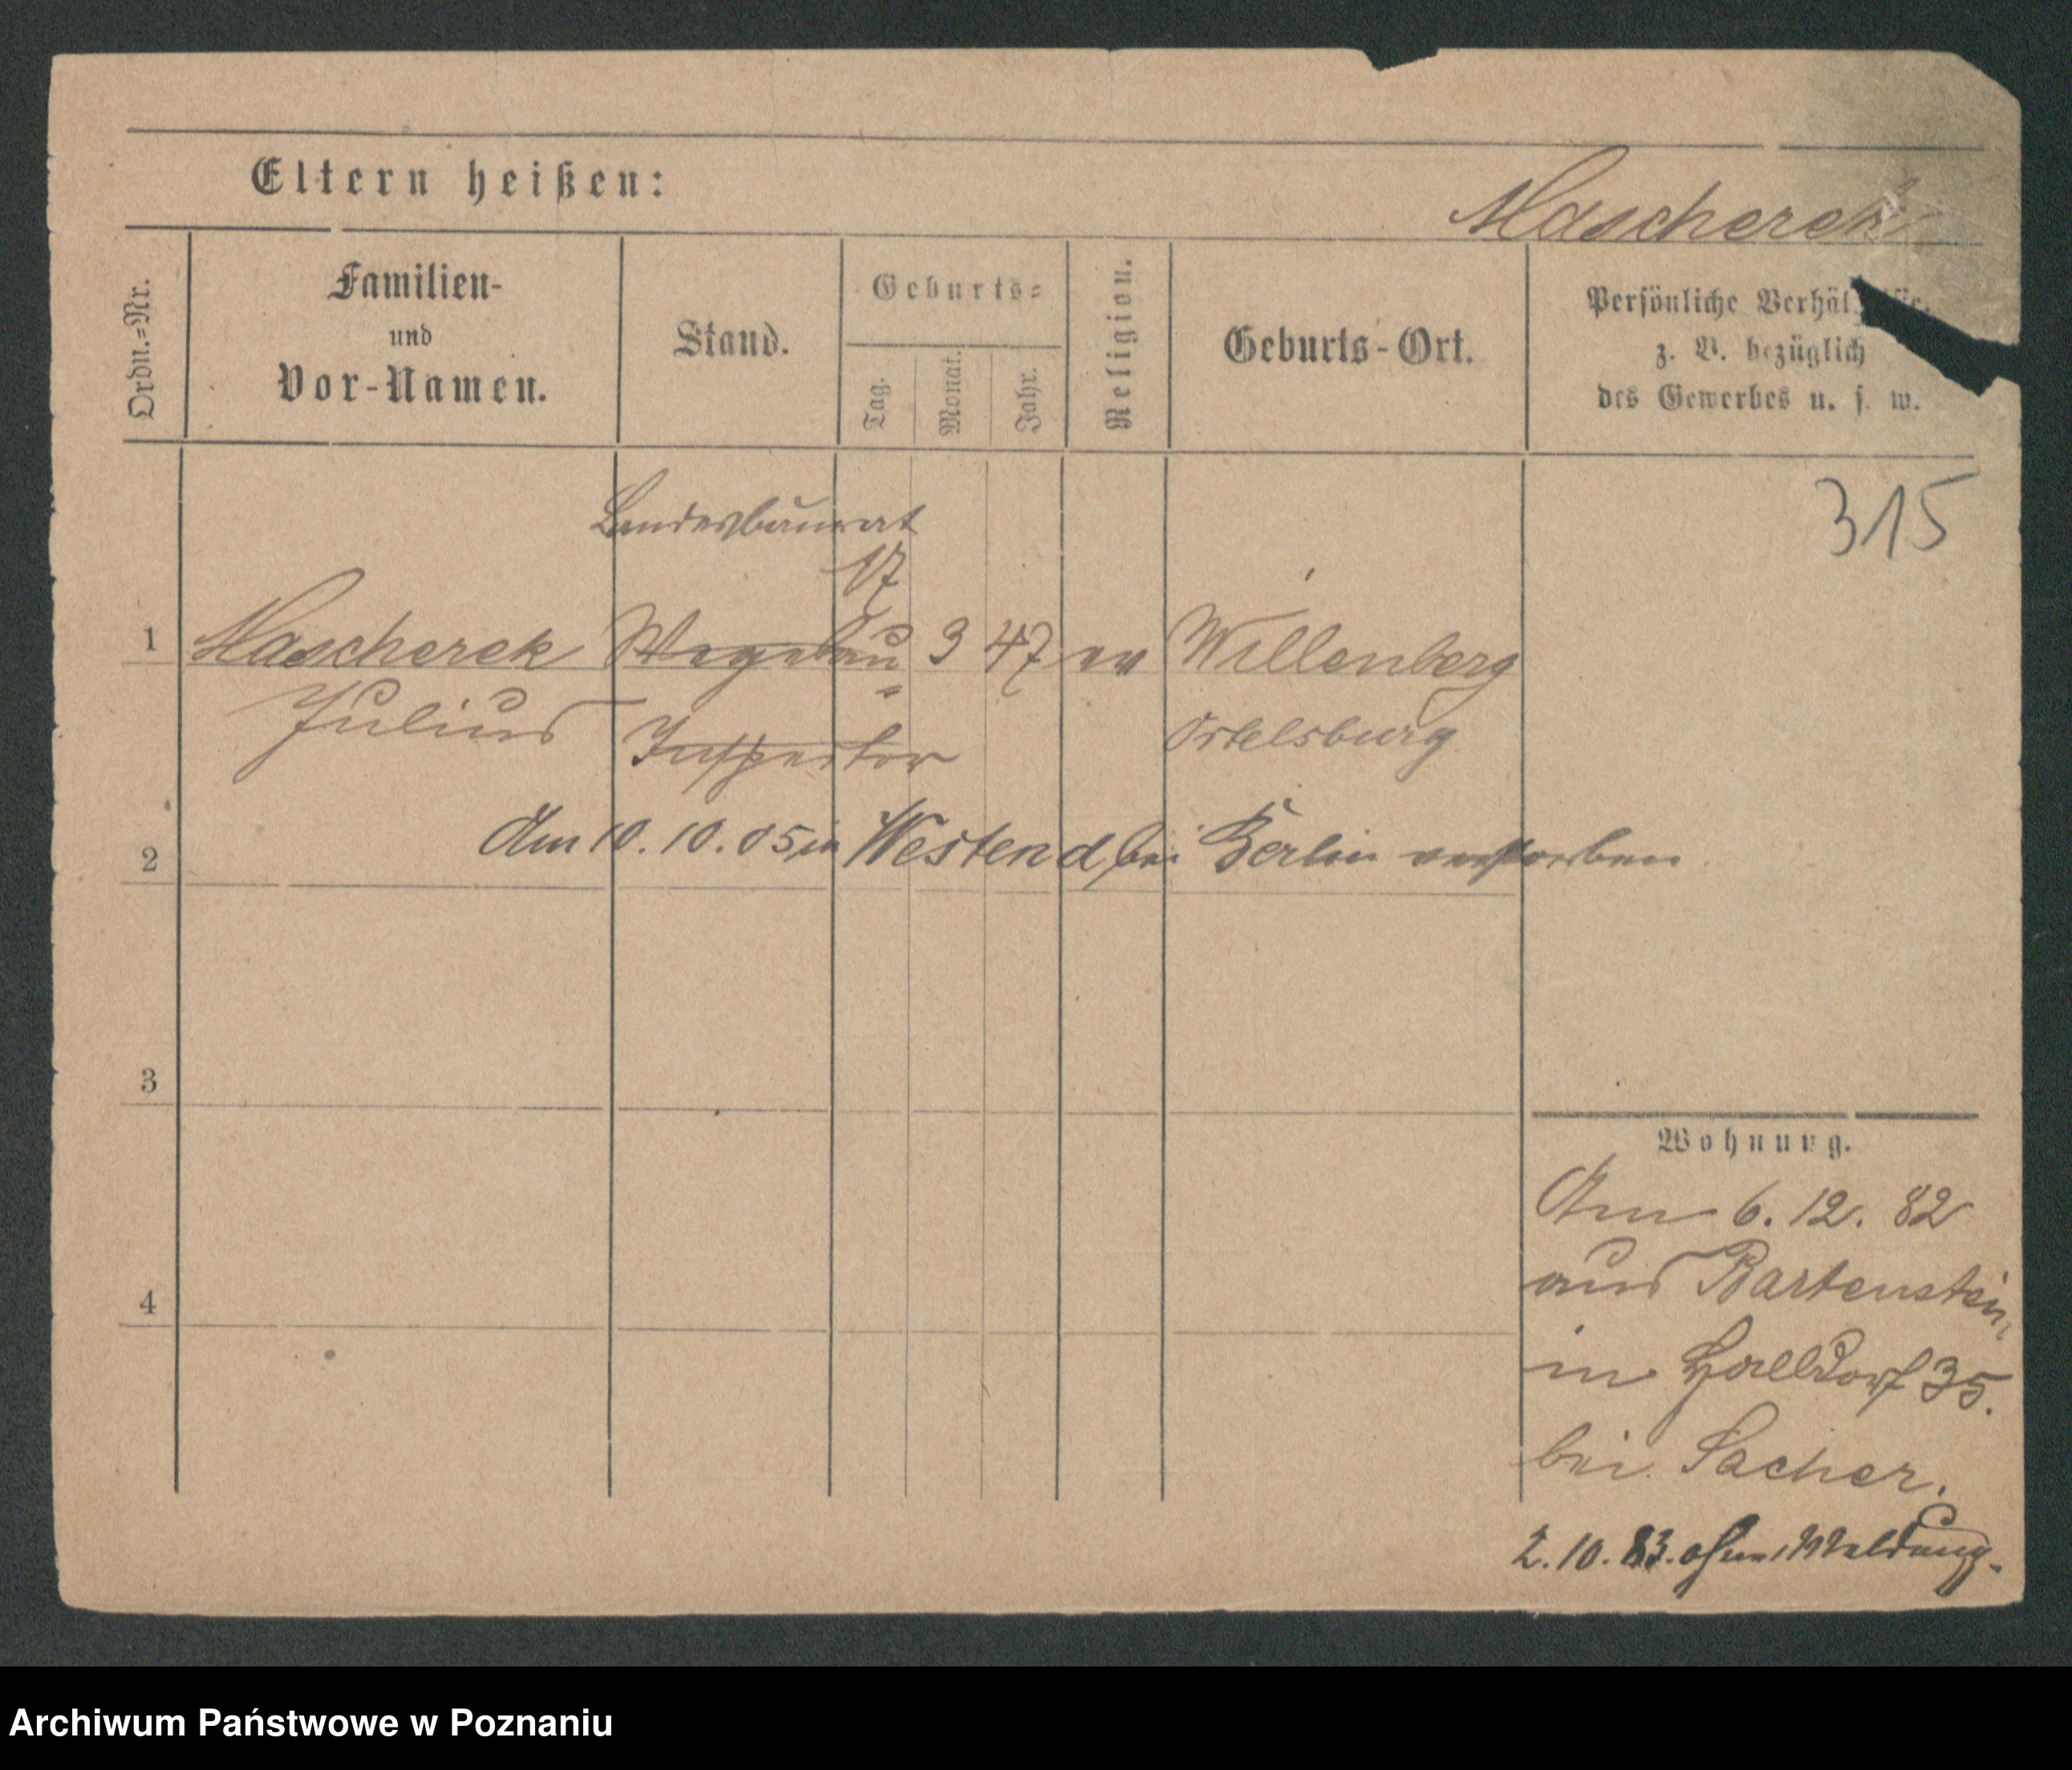 Eltern heißen:
Mascherek
Ordn.=Nr.
Familien-
und
Vor-Namen.
Stand.
Geburts=
Tag.
Monat.
Jahr.
Religion.
Geburts-Ort.
Persönliche Verhäl
z. B. bezüglich
des Gewerbes u. s. w.
315
Landesbaurat
17
1 Mascherek Wegebau= 3 47 ev Willenberg
Julius Inspector Ortelsburg
2 Am 10. 10. 05 in Westend bei Berlin verstorben
3
Wohnung.
Am 6. 12. 82
aus Bartenstein,
4
in Halldorf 35.
bei Sacher.
2. 10. 83. ohne Meldung.
Archiwum Państwowe w Poznaniu